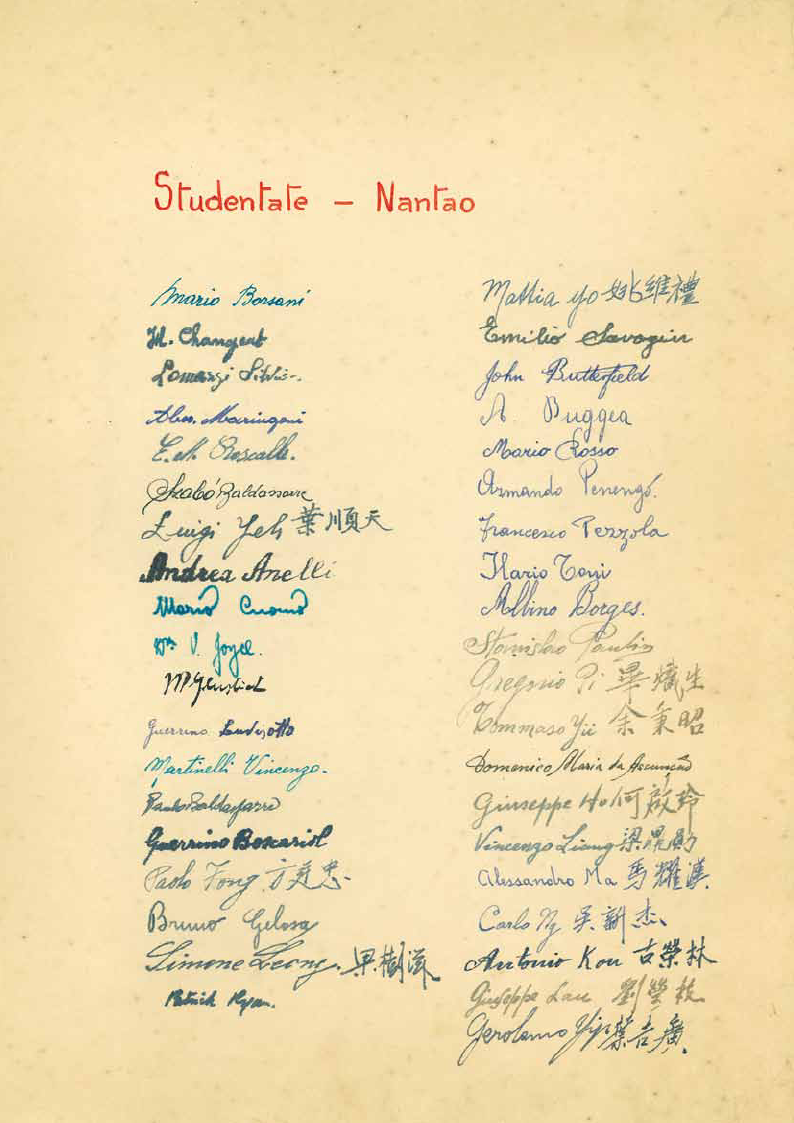 Studentate - Nantao
Mario Borsani
M. Changeat
Lomazzi Silvio
Aless. Maringoni
E. M. Roscalli.
Szabó Baldassare
Luigi Yeh 葉順天
Andrea Anelli
Mario Cuomo
Wm V. Joyce.
Guerrino Landisotto
Martinelli Vincenzo.
Paulo Baldassarre
Guerrino Boscariol
Paolo Fong 方廷忠
Bruno Gelosa
Simone Leong. 梁樹滋
Patrick Ryan.
Mattia Yo 姚維禮
Emilio Savogin
John Butterfield
A. Buggea
Mario Rosso
Armando Penengo.
Francesco Pezzola
Ilario Toni
Albino Borges.
Stanislao Paulin
Gregorio Pi 畢熾生
Tommaso Yü 余秉昭
Domenico Maria da Ascunção
Giuseppe Ho 何啟玲
Vincenzo Liang 梁
Alessandro Ma 馬耀漢
Carlo Ng 吳新杰
Antonio Kou 古榮林
Giuseppe Lau 劉榮枝
Gerolamo Yip 葉吾廣